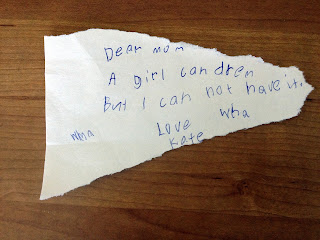 Dear mom
A girl can drem
But I can not have it.
wha
wha
Love
Kate